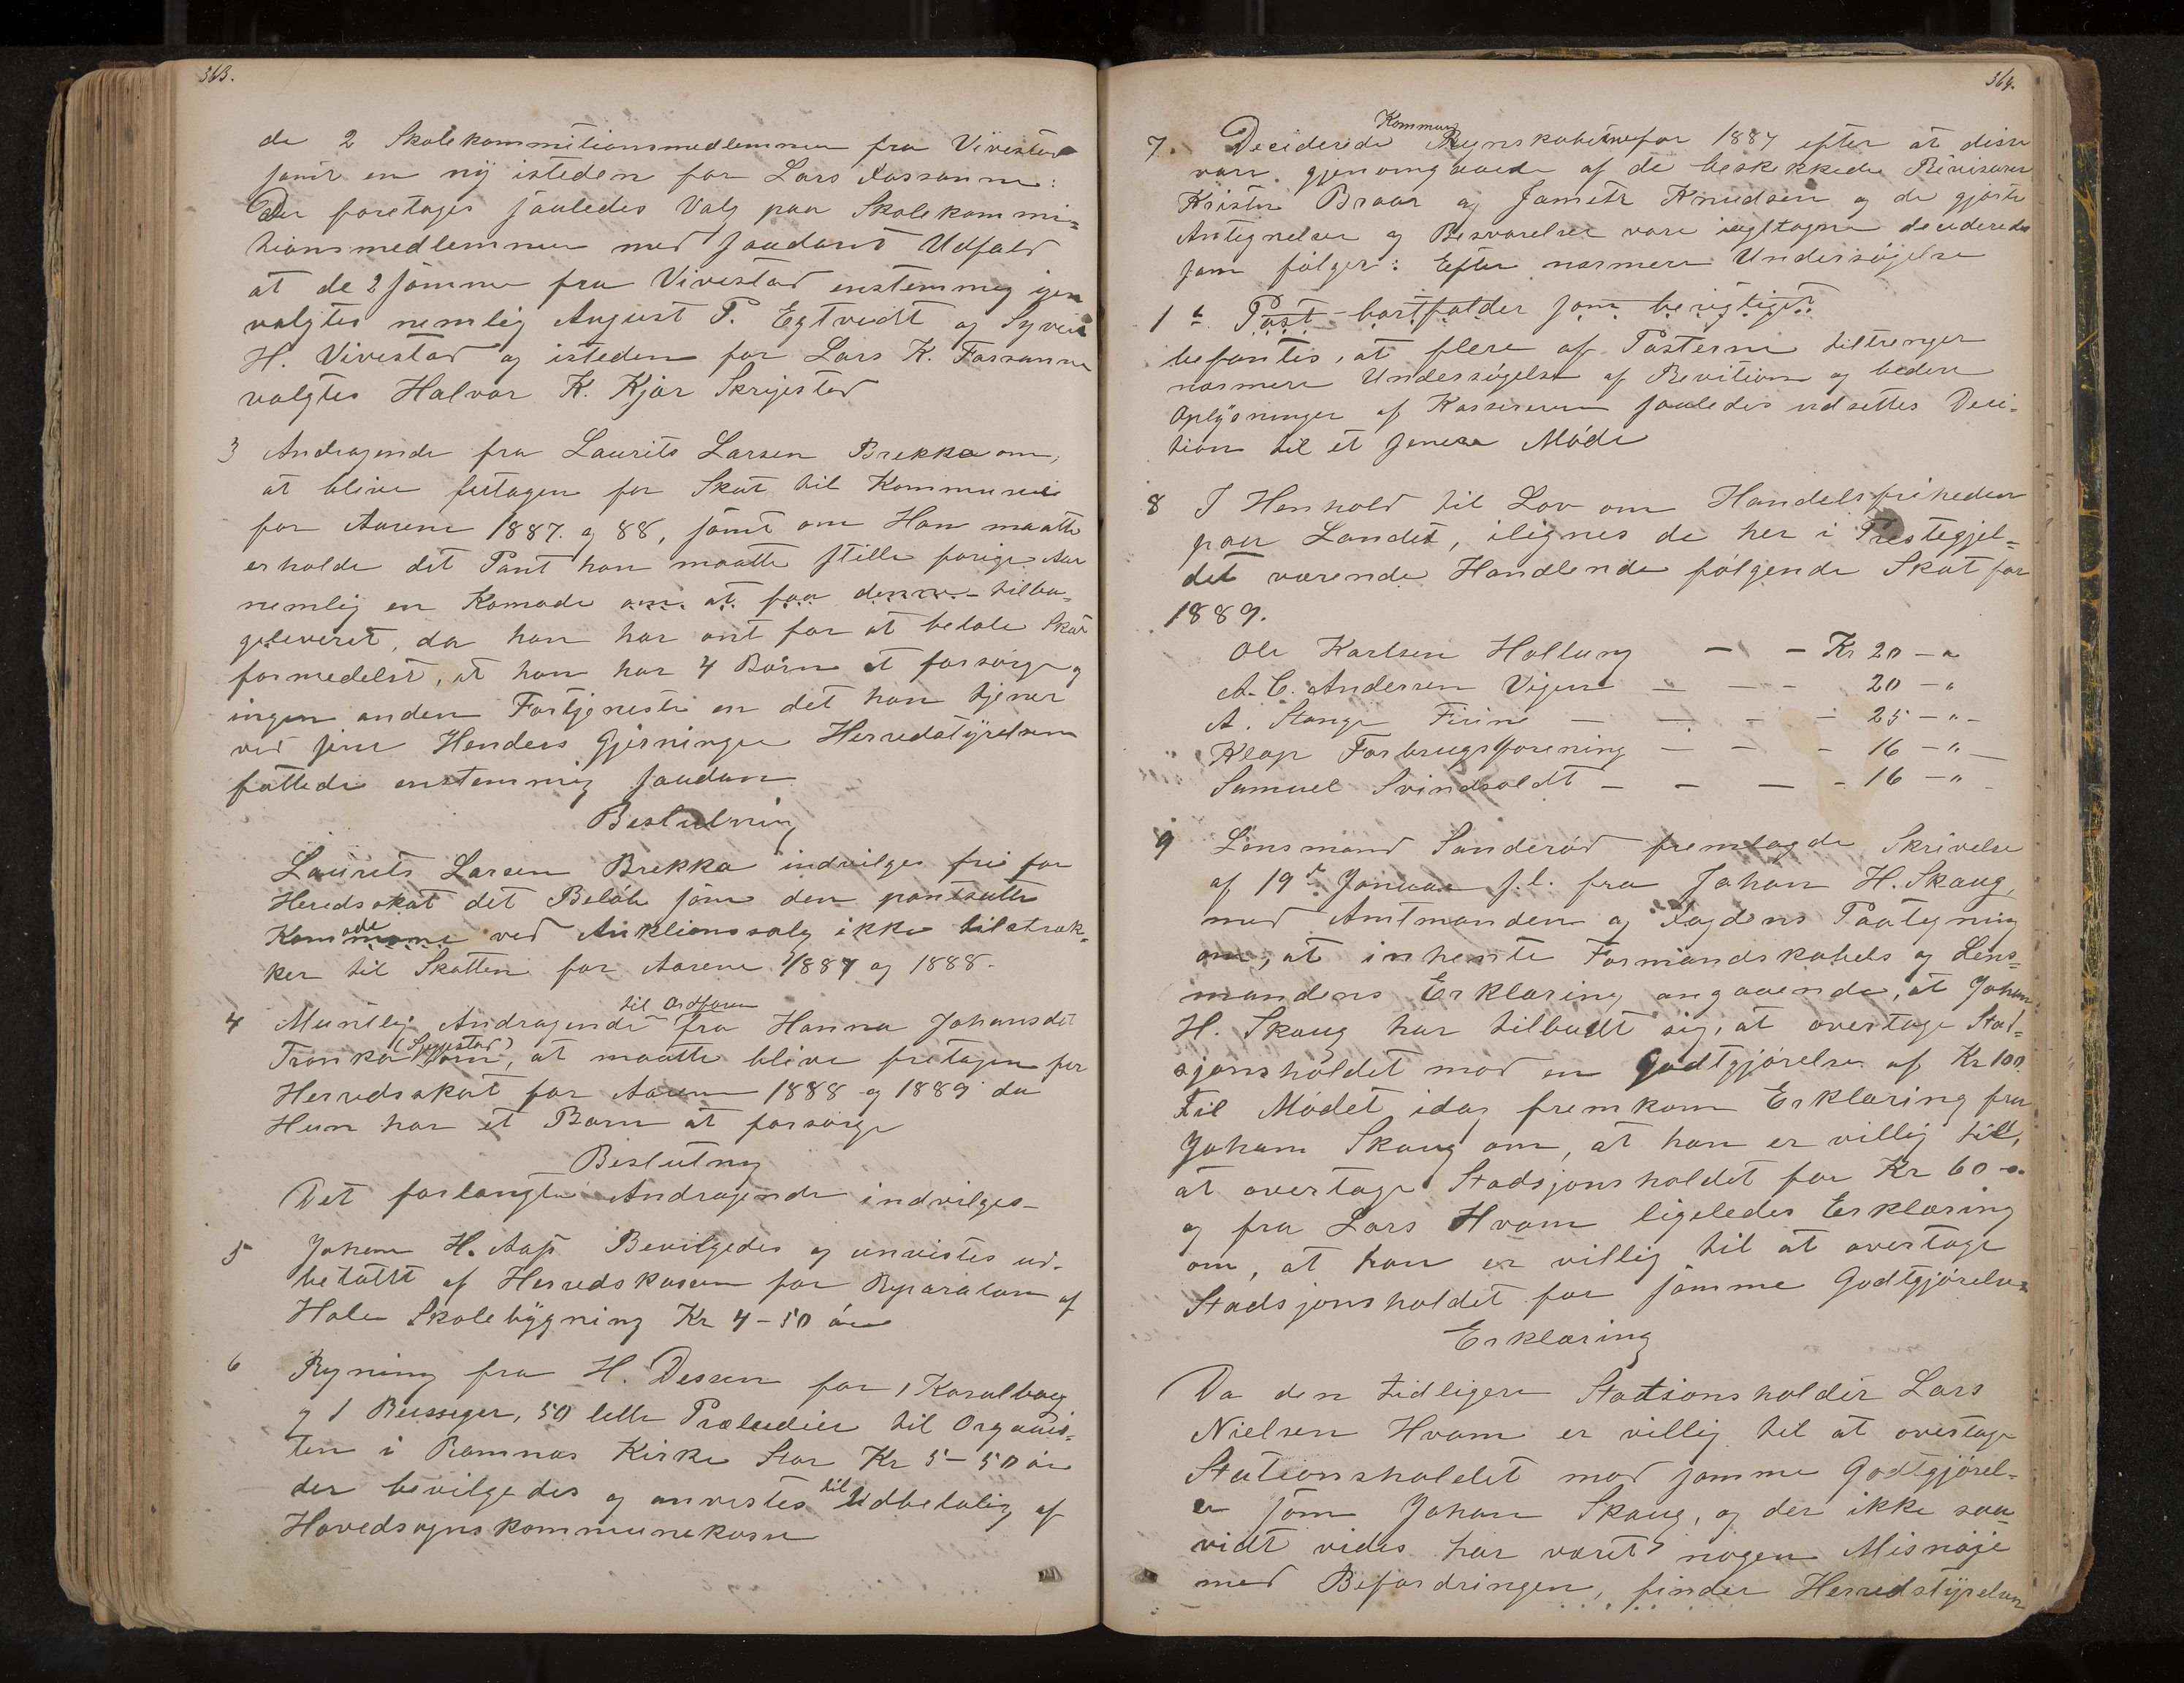 363.
de 2 Skolekommitionsmedlemmer fra Vivestad
samt en ny isteden for Lars Fossanne:
Der foretages saaledes Valg paa Skolekommi=
tionsmedlemmer med saadant Udfald
at de 2 somme fra Vivestad enstemmig igjen
valgtes nemlig August P. Egtvedt og Syver
H. Vivestad og isteden for Lars K. Fossanne
valgtes Halvor K. Kjær Skrejestad
3 Andragende fra Laurits Larsen Brekka om,
at blive fritagen for Skat til Kommunen
for Aarene 1887. og 88, samt om Han maatte
erholde det Pant han maatte stille forige Aar
nemlig en Komode om at faa denne tilba=
geleveret, da han har ont for at betale Skat
formedelst, at han har 4 Børn at forsørge og
ingen anden Fortjeneste en det han tjener
ved sine Henders Gjerninger Herredstyrelsen
fattede enstemmig saadan
Beslutning
Laurits Larsen Brekka indvilges fri for
Heredsskat det Beløb som den pantsatte
Kommode ved Auktionssalg ikke tilstræk=
ker til Skatten for Aarene 1887 og 1888.
til Ordføren
4 Muntlig Andragende fra Hanna Johansdet
(Syvestad)
Tronka, at maatte blive fritagen for
Herredsskat for Aarene 1888 og 1889 da
Hun har et Barn at forsørge
Beslutning
Det forlangte Andragende indvilges-
5 Johan H. Aas Bevilgedes og anvistes ud-
betalt af Herredskassen for Reparation af
Holen Skolebygning Kr 4-50 øre
6 Regning fra H. Dessen for 1 Koralbog
og 1 50 lette Præludier til Organis=
ten i Ramnæs Kirke Stor Kr 5-50 øre
der bevilgedes og anvistes til Udbetaling af
Hovedsognskommunekasse
364.
Kommune
7. Deciderede Regnskaberne for 1887 efter at disse
vare gjenomgaaede af de beskikkede Revisorer
Kristen Braar og Knudsen og de gjorte
Antegnelser og Besvarelser vare iagttagne decideredes
som følger: Efter nærmere Undersøgelse
1te Post bortfalder som berigtiget
befantes, at flere af Posterne tiltrenger
nærmere Undersøgelse af Revition og bedere
Oplysninger af Kassereren saaledes udsettes Deci-
tion til et senere Møde
8 I Henhold til Lov om Handelsfriheden
paa Landet, ilignes de her i Prestegjel=
det værende Handlende følgende Skat for
1889.
Ole Karlsen Hollung — — Kr 20 — "
A. C. Andersen Vigen — — — 20 — "
A. Stange Firing — — — — 25 — " —
Klop Forbrugsforening — — — 16 — " —
Samuel Svindsoldt — — — — 16 — " —
9 Lensmand Sanderød fremlagde Skrivelse
af 19de Januar f.l. fra Johan H. Skaug,
med Amtmanden og Fogdens Paategning
om, at inhente Formandskabets og Lens=
mandens Erklæring angaaende, at Johan
H. Skaug har tilbudt sig, at overtage Stad=
sjonsholdet mod en Godtgjørelse af Kr 100.
Til Mødet idag fremkom Erklæring fra
Johan Skaug om, at han er villig till,
at overtage Stadsjonsholdet for Kr 60 -
og fra Lars Hvam ligeledes Erklæring
om, at han er villig til at overtage
Stadsjonsholdet for somme Godtgjørelse
Erklæring
Da den tidligere Stationsholder Lars
Nielsen Hvam er villig til at overtage
Stationsholdet mod somme Godtgjørel=
se som Johan Skaug, og der ikke saa=
vidt vides har været nogen Misnøje
med Befordringen, finder Herredstyrelsen